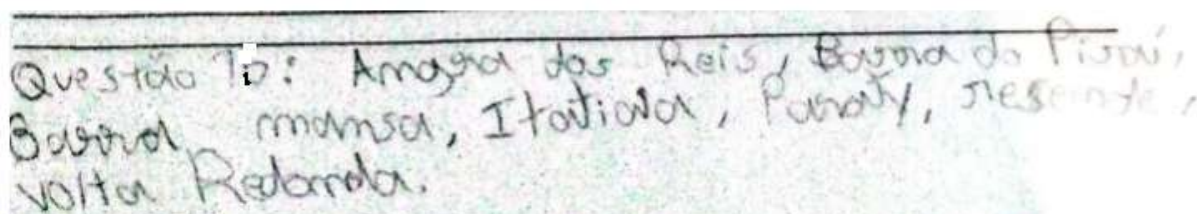 Questão 10: Angra dos Reis, Barra do Piraí,
Barra mansa, Itatiaia, Paraty, resende,
volta Redonda.